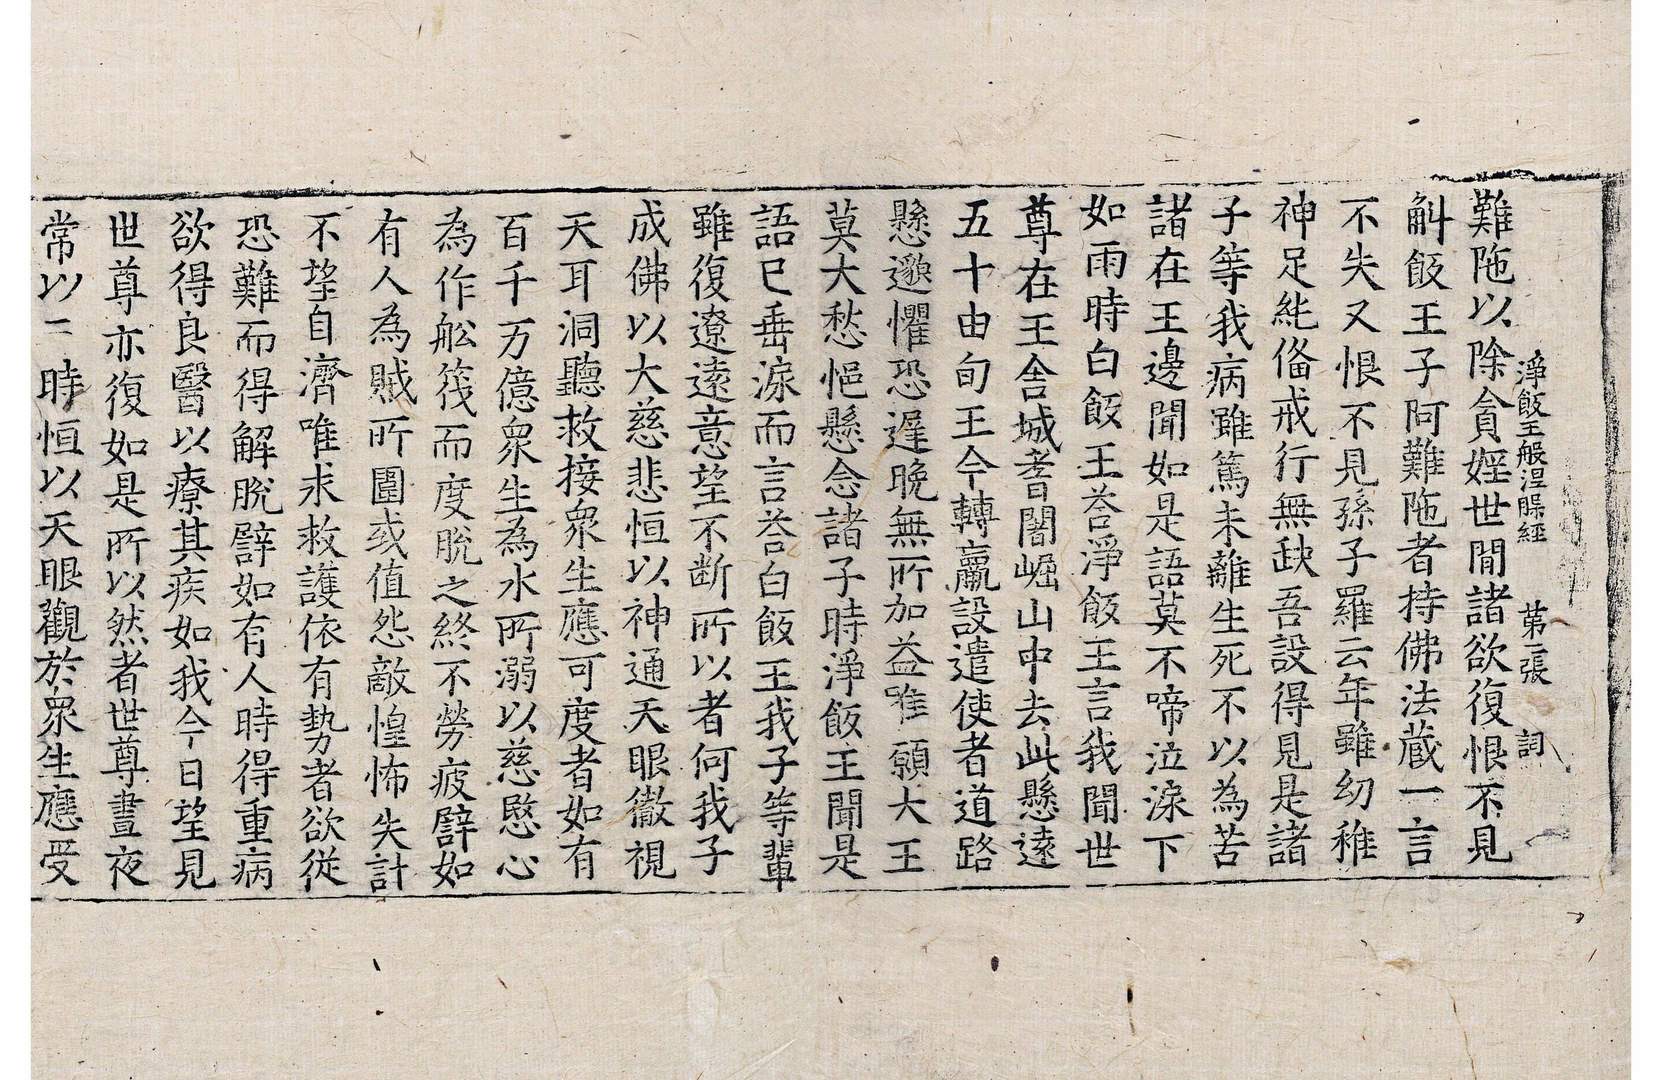 淨飯王般涅槃經 第二張 詞
難陁以除貪婬世間諸欲復恨不見
斛飯王子阿難陁者持佛法蔵一言
不失又恨不見孫子羅云年雖幼稚
神足純俻戒行無缺吾設得見是諸
子等我病雖篤未離生死不以為苦
諸在王邊聞如是語莫不啼泣淚下
如雨時白飯王荅淨飯王言我聞世
尊在王舍城耆闍崛山中去此懸遠
五十由旬王今轉羸設遣使者道路
懸邈懼恐遲晚無所加益唯願大王
莫大愁悒懸念諸子時淨飯王聞是
語已垂淚而言荅白飯王我子等輩
雖復遼遠意望不断所以者何我子
成佛以大慈悲恒以神通天眼徹視
天耳洞聽救接衆生應可度者如有
百千万億衆生為水所溺以慈愍心
為作舩筏而度脫之終不勞疲譬如
有人為賊所圍或值怨敵惶怖失計
不望自濟唯求救護依有勢者欲從
恐難而得解脫譬如有人時得重病
欲得良醫以療其疾如我今日望見
世尊亦復如是所以然者世尊晝夜
常以二時恒以天眼觀於衆生應受